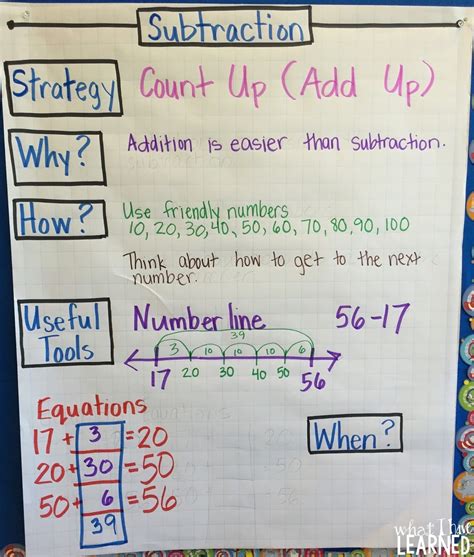 Subtraction
Strategy
Count Up (Add Up)
Why?
Addition is easier than subtraction.
How?
Use friendly numbers
10, 20, 30, 40, 50, 60, 70, 80, 90, 100
Think about how to get to the next
number.
Useful
Tools
Number line
56-17
39
3 10 10 10 6
17 20 30 40 50 56
Equations
17 + 3 = 20
20 + 30 = 50
50 + 6 = 56
39
When?
what I have
LEARNED